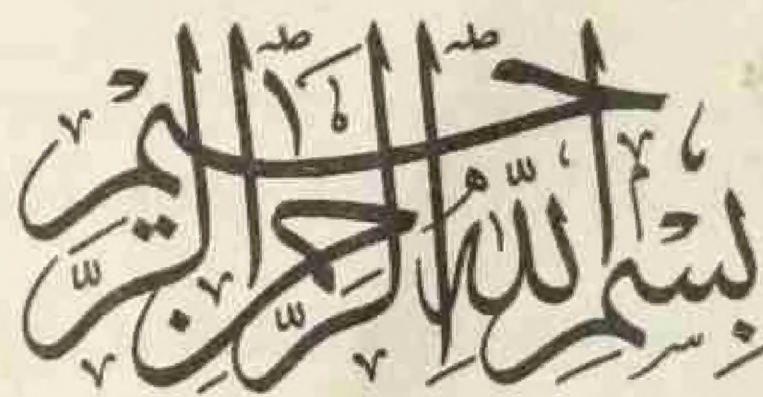 بِسْمِ اللهِ الرَّحْمٰنِ الرَّحِيمِ